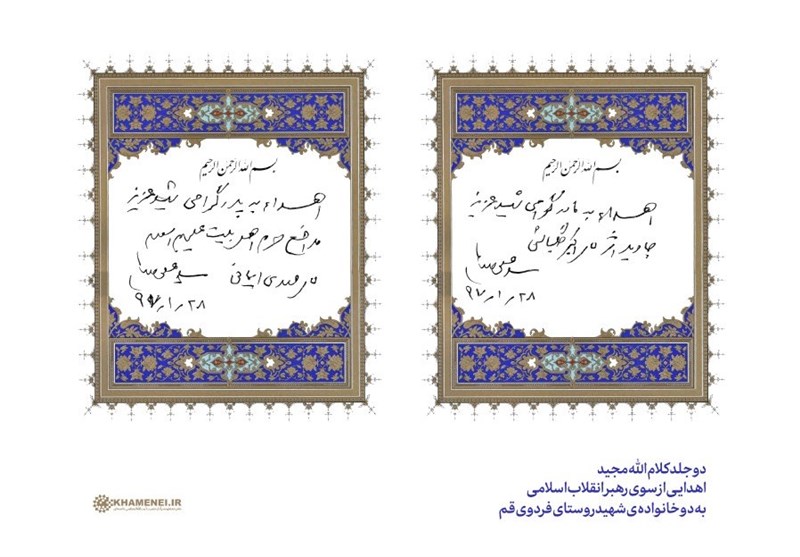 بسم الله الرحمن الرحیم
اهداء به مادر گرامی شهید عزیز
جاوید اثر اکبر
سید علی خامنه‌ای
۹۷/۱/۲۸
بسم الله الرحمن الرحیم
اهداء به پدر گرامی شهید عزیز
مدافع حرم اهل بیت علیهم السلام
مهدی ایمانی سید علی خامنه‌ای
۹۷/۱/۲۸
دو جلد کلام الله مجید
اهدایی از سوی رهبر انقلاب اسلامی
به دو خانواده‌ی شهید روستای فردوی قم
KHAMENEI.IR